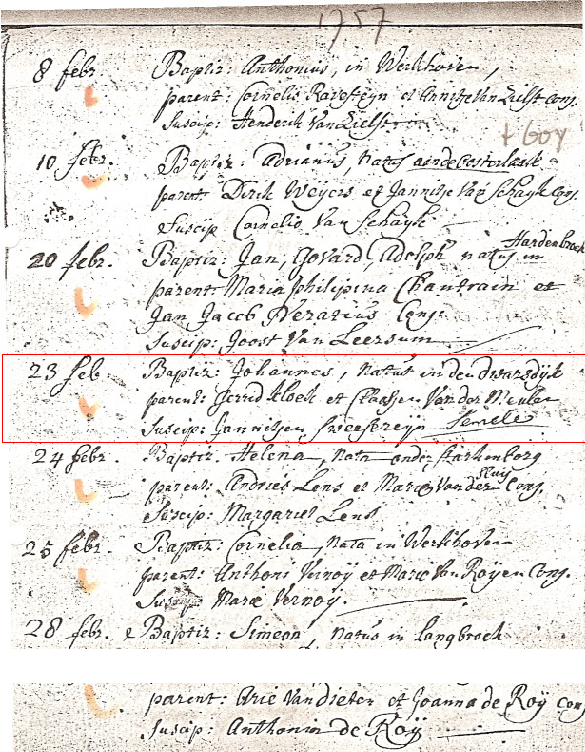 1757
8 febr. Baptiz: Anthonius, in Werkhoven,
parent: Cornelis Ravesteyn et Annitje Van Zulst Conj.
Suscip: Henderik Van Zulst
+ Goy
10 febr. Baptiz: Adrianus, natus
parent: Dirk Weyers et Jannitje Van Schayk Conj.
Suscip Cornelia Van Schayk
Hardenbroek
20 febr. Baptiz: Jan, Govard, Adolph natus in
parent: Maria philipina Chantrain et
Jan Jacob Conj:
Suscip: Joost Van Leersum
23 feb Baptiz: Johannes, natus in den dwarsdijk
parent: Gerrid Kloek et Claasje Van der Meulen
Suscip: Jannitjen
24 febr. Baptiz. Helena, nata onder Sterkenborg
Sluijs
parent: Andries Lens et Marie Van der Conj.
Suscip: Margariet Lens
25 febr. Baptiz: Cornelia, nata in Werkhoven
parent: Anthoni Vernoÿ et Marie Van Roÿen Conj.
Suscip Marie Vernoÿ.
28 febr. Baptiz: Simeon, natus in langbroek
parent: Arie Van Dieten et Joanna de Roÿ Conj
Suscip: Anthonia de Roÿ